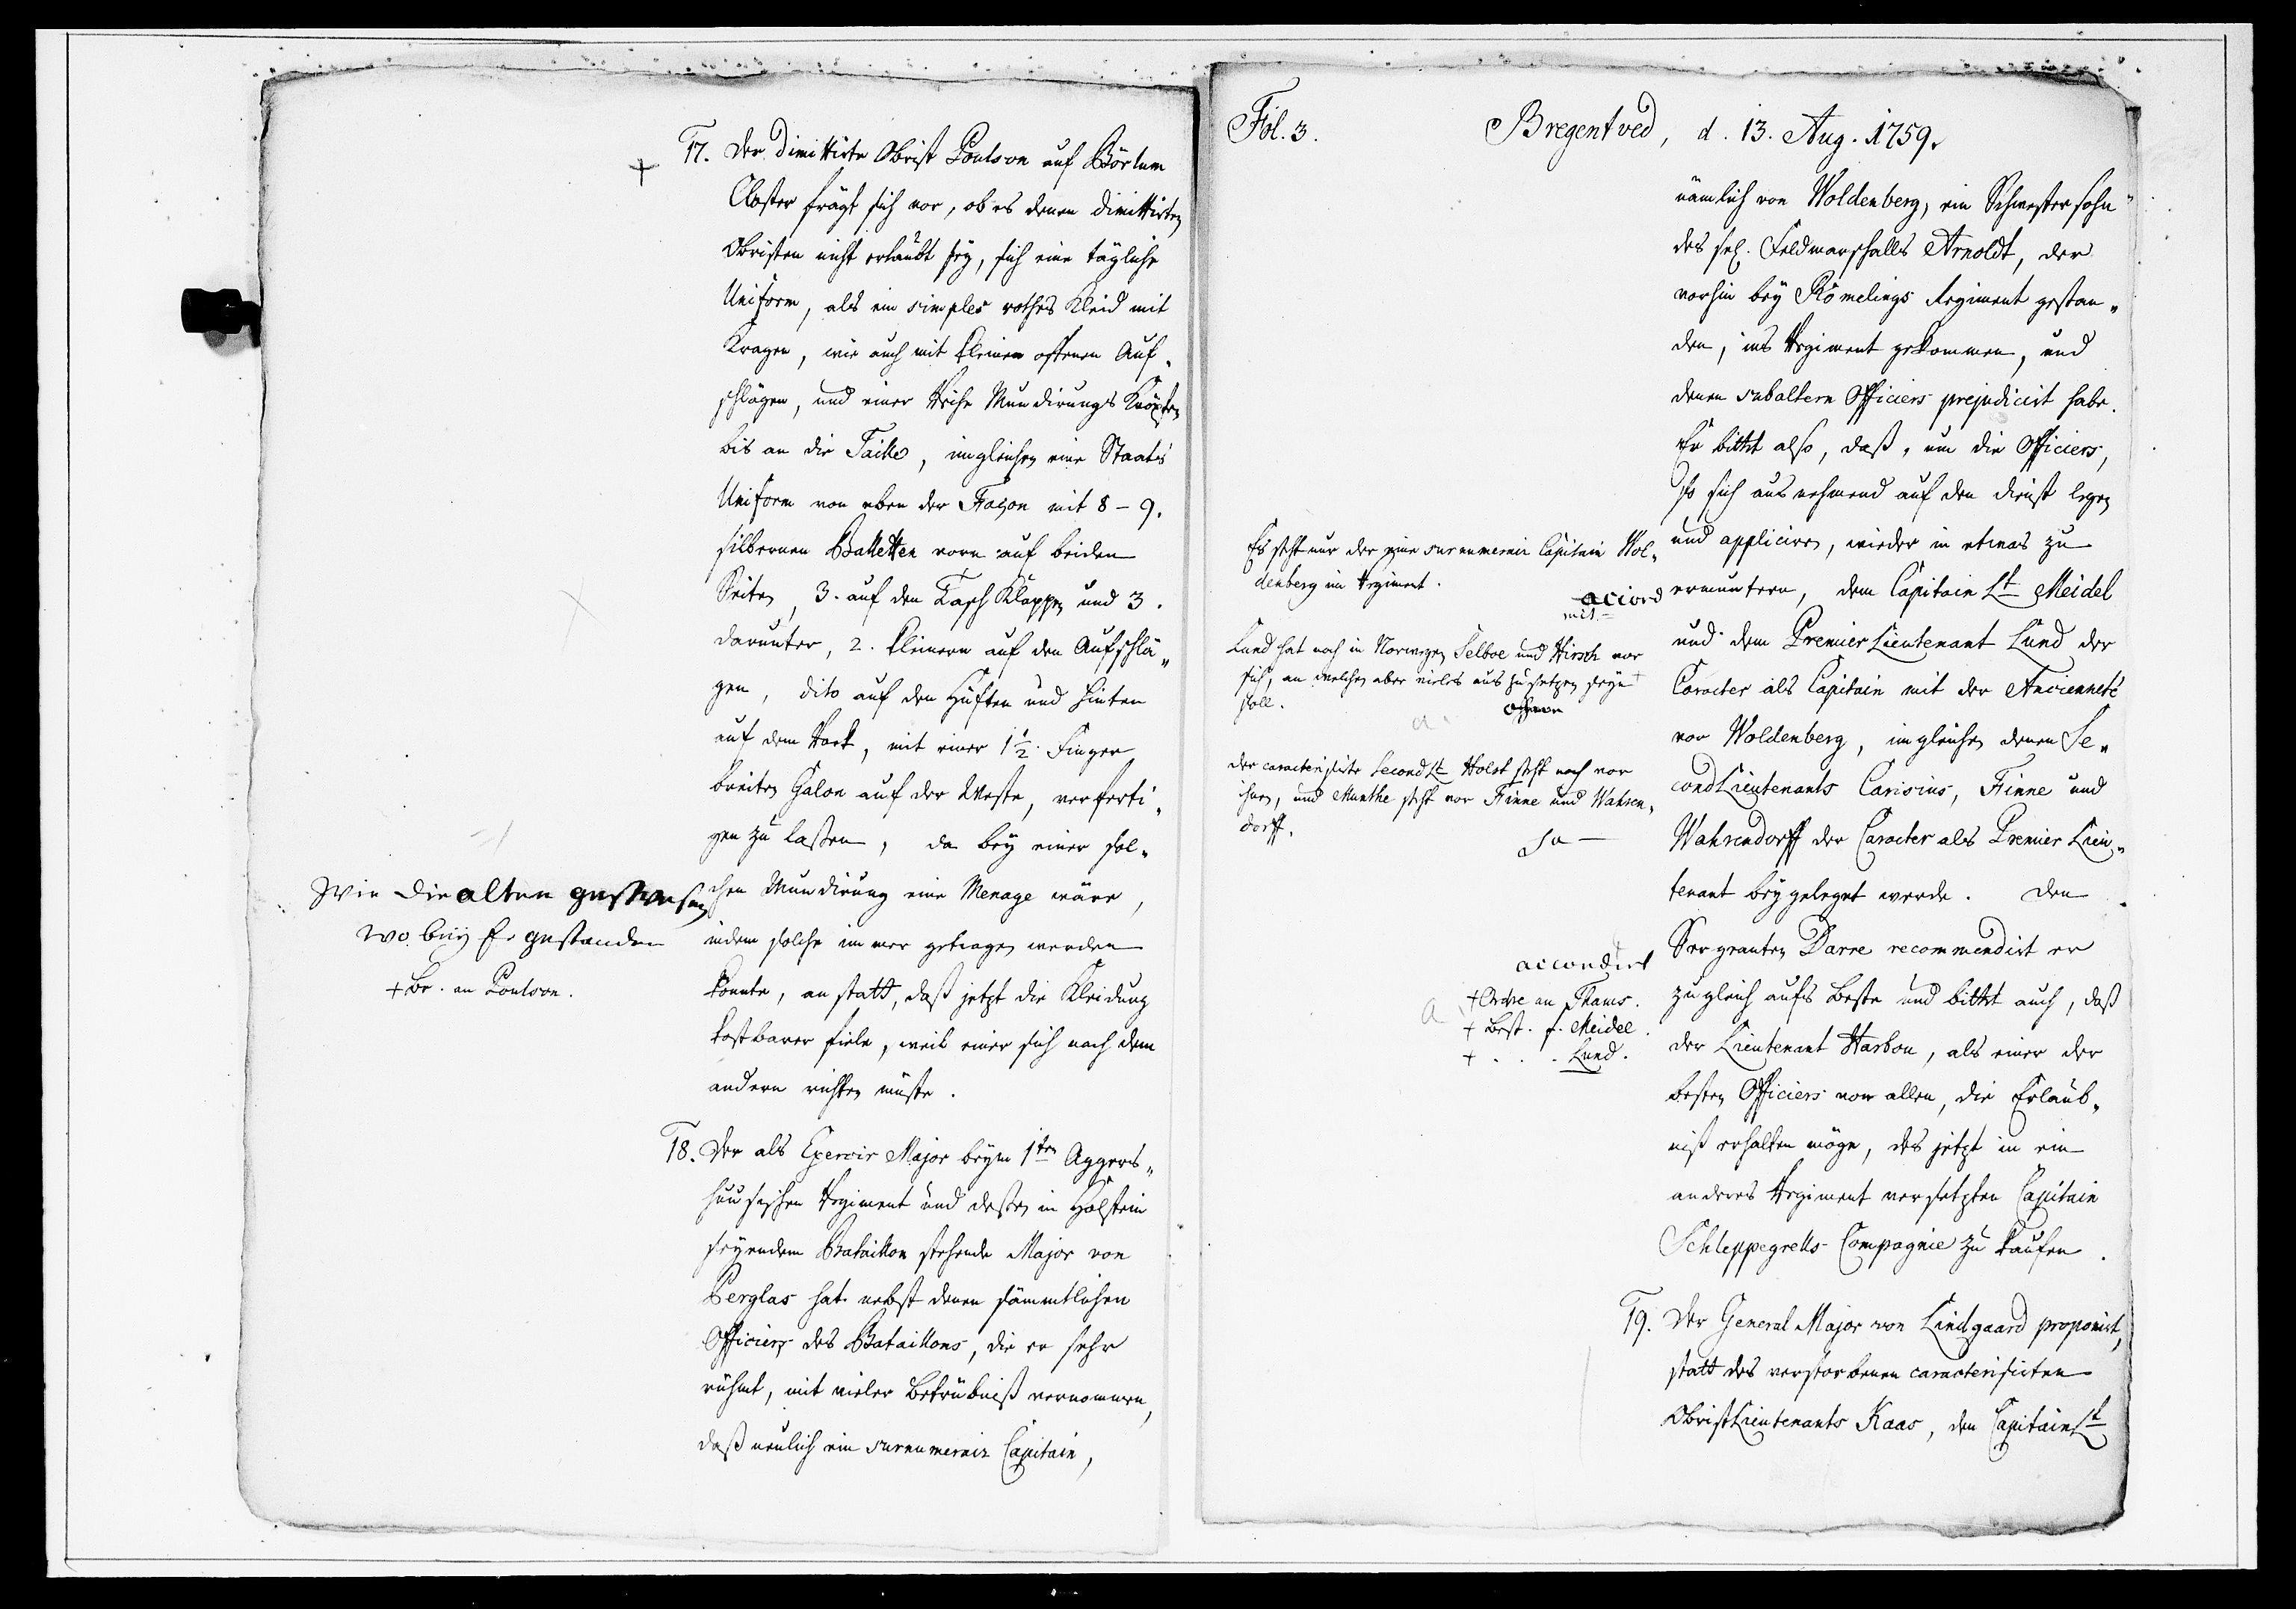 17. Der dimittirte Obrist Poulson auf Börlum
Closter frägt sich vor, ob es denen dimittirten
Obristen nicht erlaubt sey, sich eine tägliche
Uniform, als ein simples rothes Kleid mit
Kragen, wie auch mit kleinen offenen Auf-
schlägen, und einer Reihe Mundirungs Knöpfen
bis an die Taille, imgleichen eine Staats
Uniform von eben der Façon mit 8 - 9.
silbernen Balletten vorn auf beiden
Seiten, 3. auf den Tasch Klappen und 3.
darunter, 2. kleinern auf den Aufschlä-
gen, dito auf den Hüften und hinten
auf dem Rock, mit einer 1 1/2. Finger
breiten Galon auf der Weste, verferti-
gen zu laßen, da bey einer sol-
chen Mundirung eine Menage wäre,
indem solche immer getragen werden
könnte, anstatt, daß jetzt die Kleidung
kostbarer fiele, weil einer sich nach dem
andern richten müste.
Wie die alten gewesen
wo beÿ Er gestanden
+ Br. an Poulson.
18. Der als Exercir Major beym 1ten Aggers-
huusischen Regiment und deßen in Holstein
seyendem Bataillon stehende Major von
Perglas hat nebst denen sämmtlichen
Officiers des Bataillons, die er sehr
rühmt, mit vieler Betrübniß vernommen,
daß neulich ein surnumerair Capitain,
Fol. 3.
Bregentved, d. 13. Aug. 1759.
nämlich von Woldenberg, ein Schwestersohn
des sel. Feldmarschalls Arnoldt, der
vorhin bey Römelings Regiment gestan-
den, ins Regiment gekommen, und
denen subaltern Officiers prejudicirt habe.
Er bittet also, daß, um die Officiers,
so sich ausnehmend auf den Dienst legen
und appliciren, wieder in etwas zu
ermuntern, dem Capitain Lt Meidel
und dem Premier Lieutenant Lund der
Caracter als Capitain mit der Ancienneté
vor Woldenberg, imgleichen denen Se-
cond Lieutenants Carisius, Finne und
Wahrendorff der Caracter als Premier Lieu-
tenant beygeleget werde. Den
Sergeanten Darre recommendirt er
zugleich aufs Beste und bittet auch, daß
der Lieutenant Harbou, als einer der
besten Officiers von allen, die Erlaub-
niß erhalten möge, des jetzt in ein
anderes Regiment versetzten Capitain
Schleppegrells Compagnie zu kaufen.
Es steht nur der eine surnumerair Capitain Wol-
denberg im Regiment.
accord
mit
Lund hat noch in Norwegen Selboe und Hirsch vor
sich, an welchen aber vieles auszusetzen seyn
soll.
Der caracterisirte Second Lt Holst steht noch vor
ihnen, und Munthe steht vor Finne und Wahren-
dorff.
accordirt
+ Ordre an Thams.
+ Best. f. Meidel.
+ . . . Lund.
19. Der General Major von Lindgaard proponirt,
statt des verstorbenen caracterisirten
Obristlieutenants Kaas, den Capitain Lt